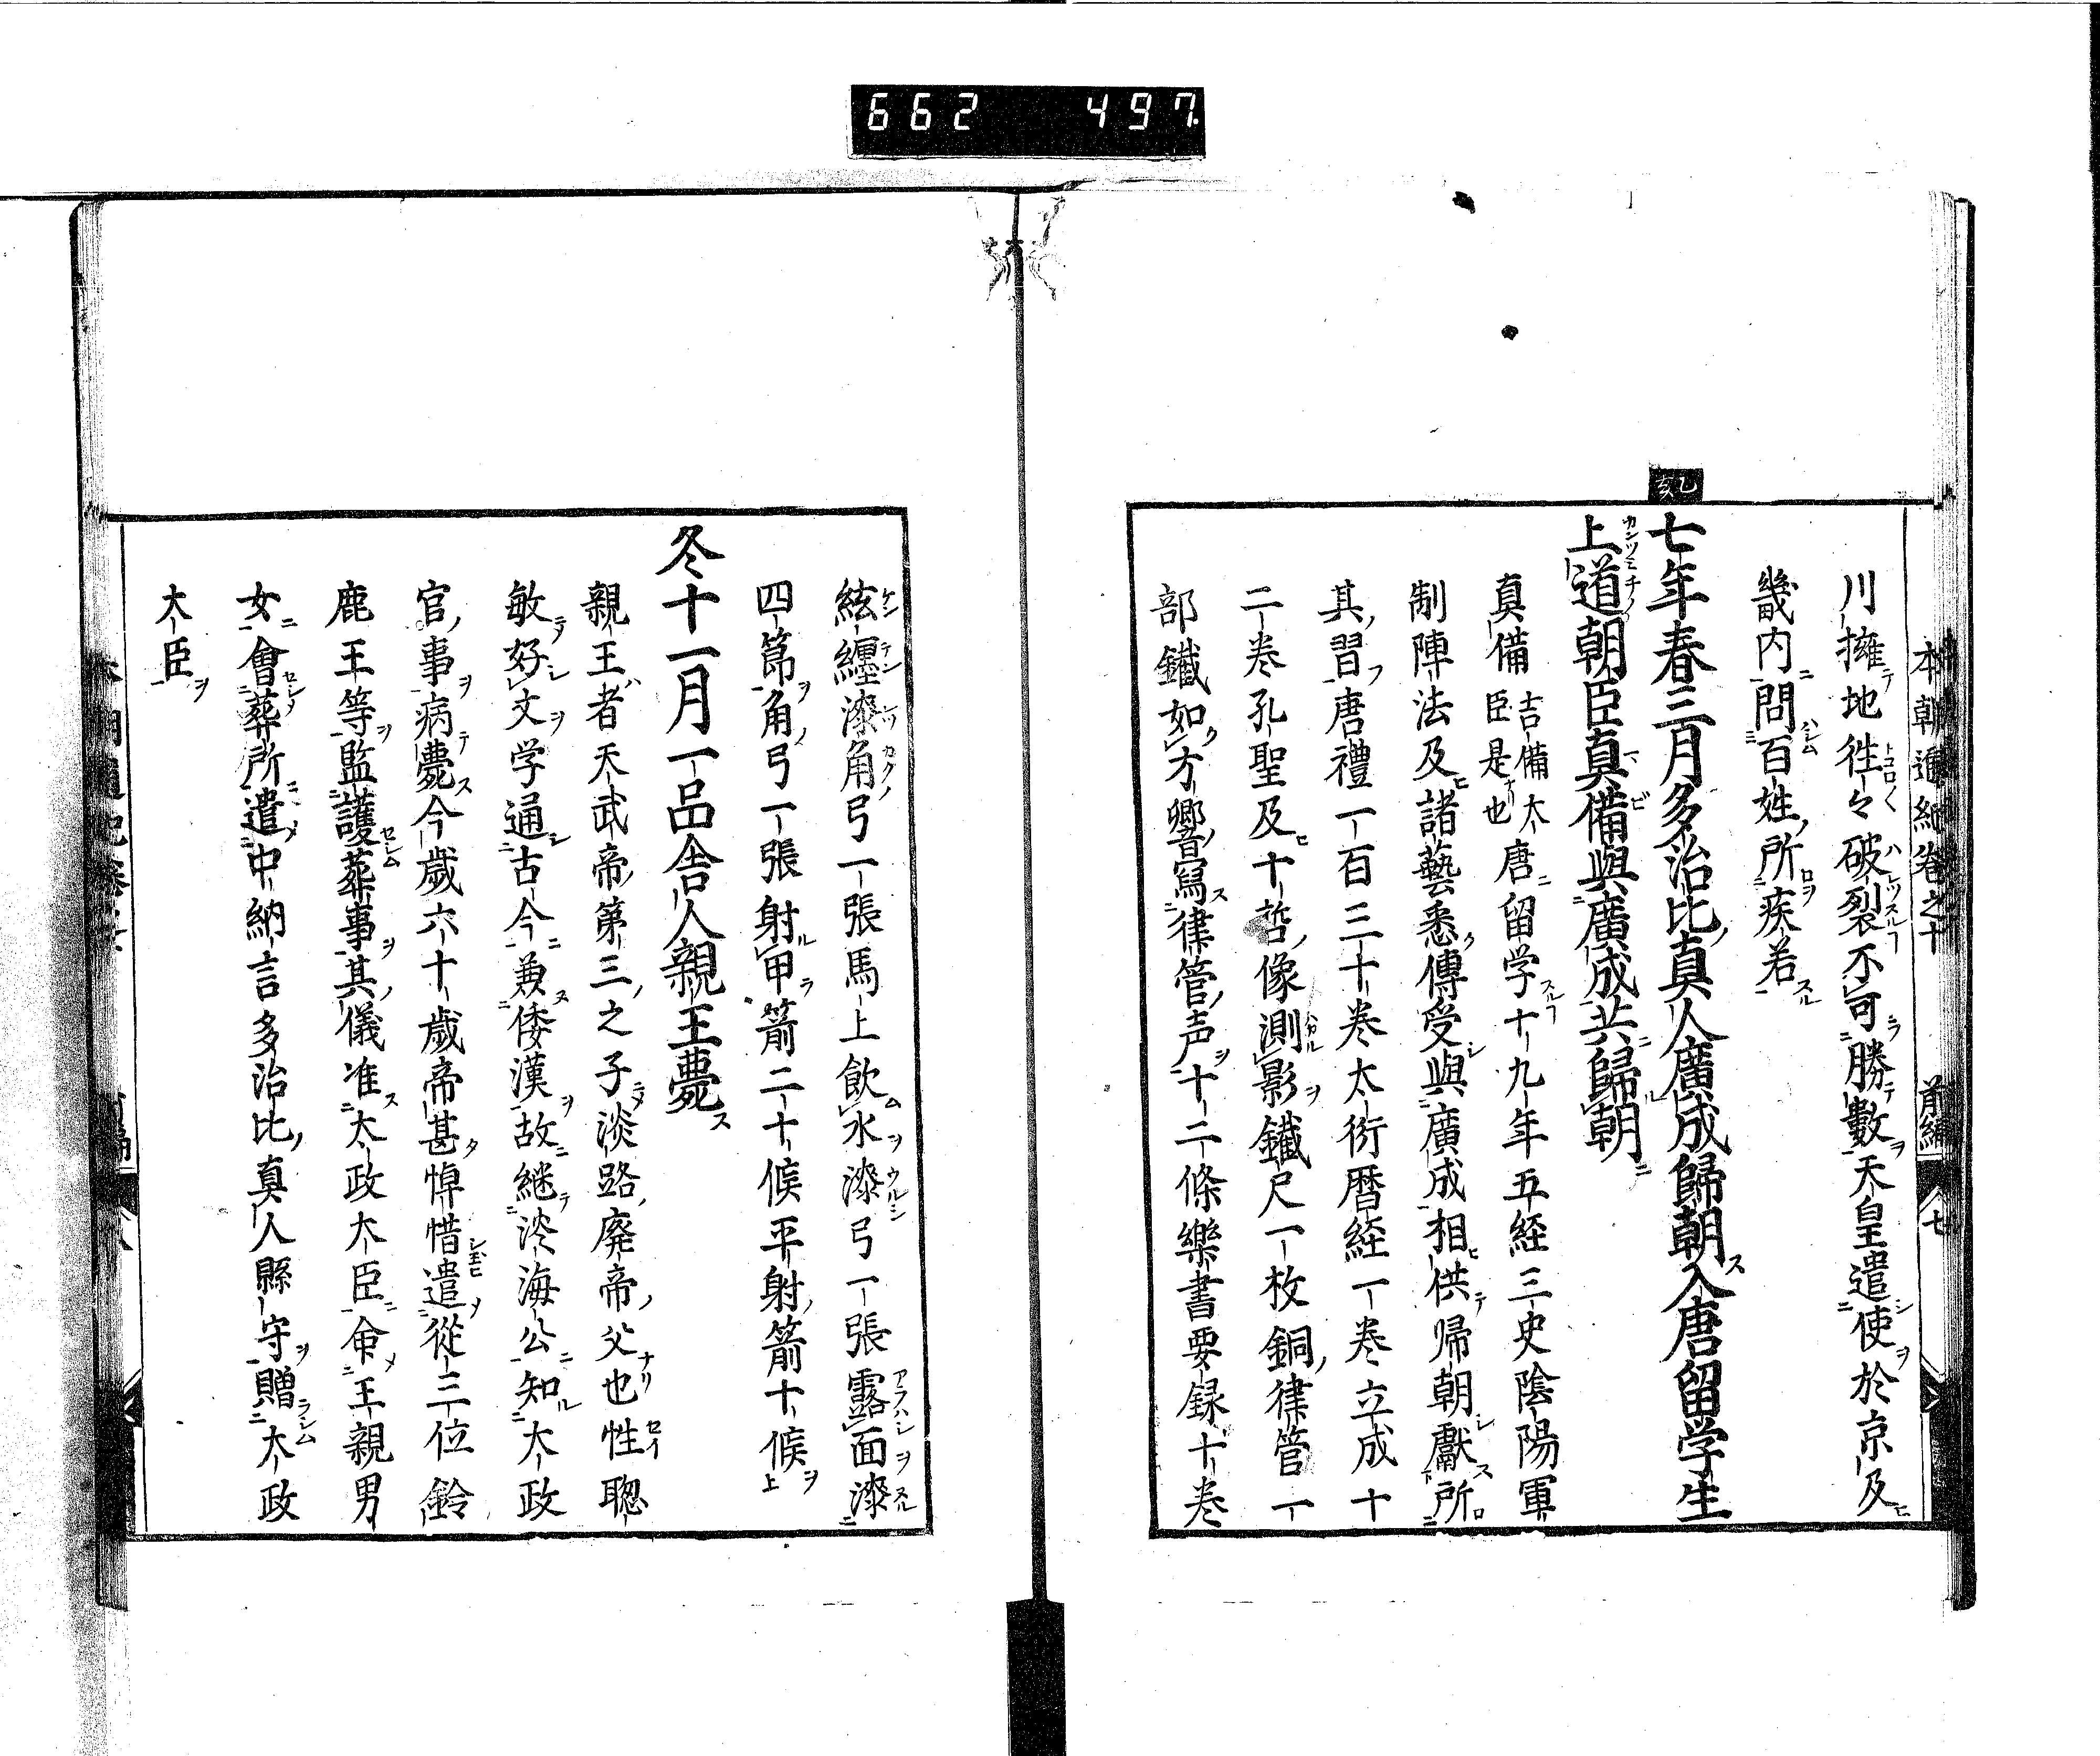 662 497.
本朝通紀卷之十 前編 七
川擁地徃々破裂不可勝數天皇遣使於京及
畿内問百姓所疾若
乙亥
七年春三月多治比真人廣成歸朝入唐留学生
上道朝臣真備與廣成共歸朝
真備吉備大臣是也唐留学十九年五経三史陰陽軍
制陣法及諸藝悉傳受與廣成相供帰朝獻所
其習唐禮一百三十卷太衍暦経一卷立成十
二卷孔聖及十哲像測影鐵尺一枚銅律管一
部鐵如方響寫律管声十二條樂書要録十卷
絃纏漆角弓一張馬上飲水漆弓一張露面漆
四節角弓一張射甲箭二十候平射箭十候
冬十一月一品舎人親王薨
親王者天武帝第三之子淡路廢帝父也性聰
敏好文学通古今兼倭漢故継淡海公知太政
官事病薨今歳六十歳帝甚悼惜遣從三位鈴
鹿王等監護葬事其儀准太政大臣命王親男
女會葬所遣中納言多治比真人縣守贈太政
大臣